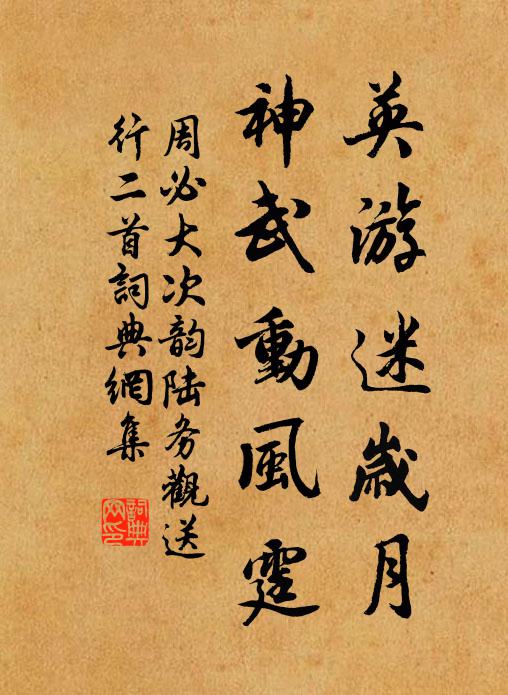 英游迷歲月
神武動風霆
周必大次韵陆务觀送
行二首詞典網集
詞典
网印